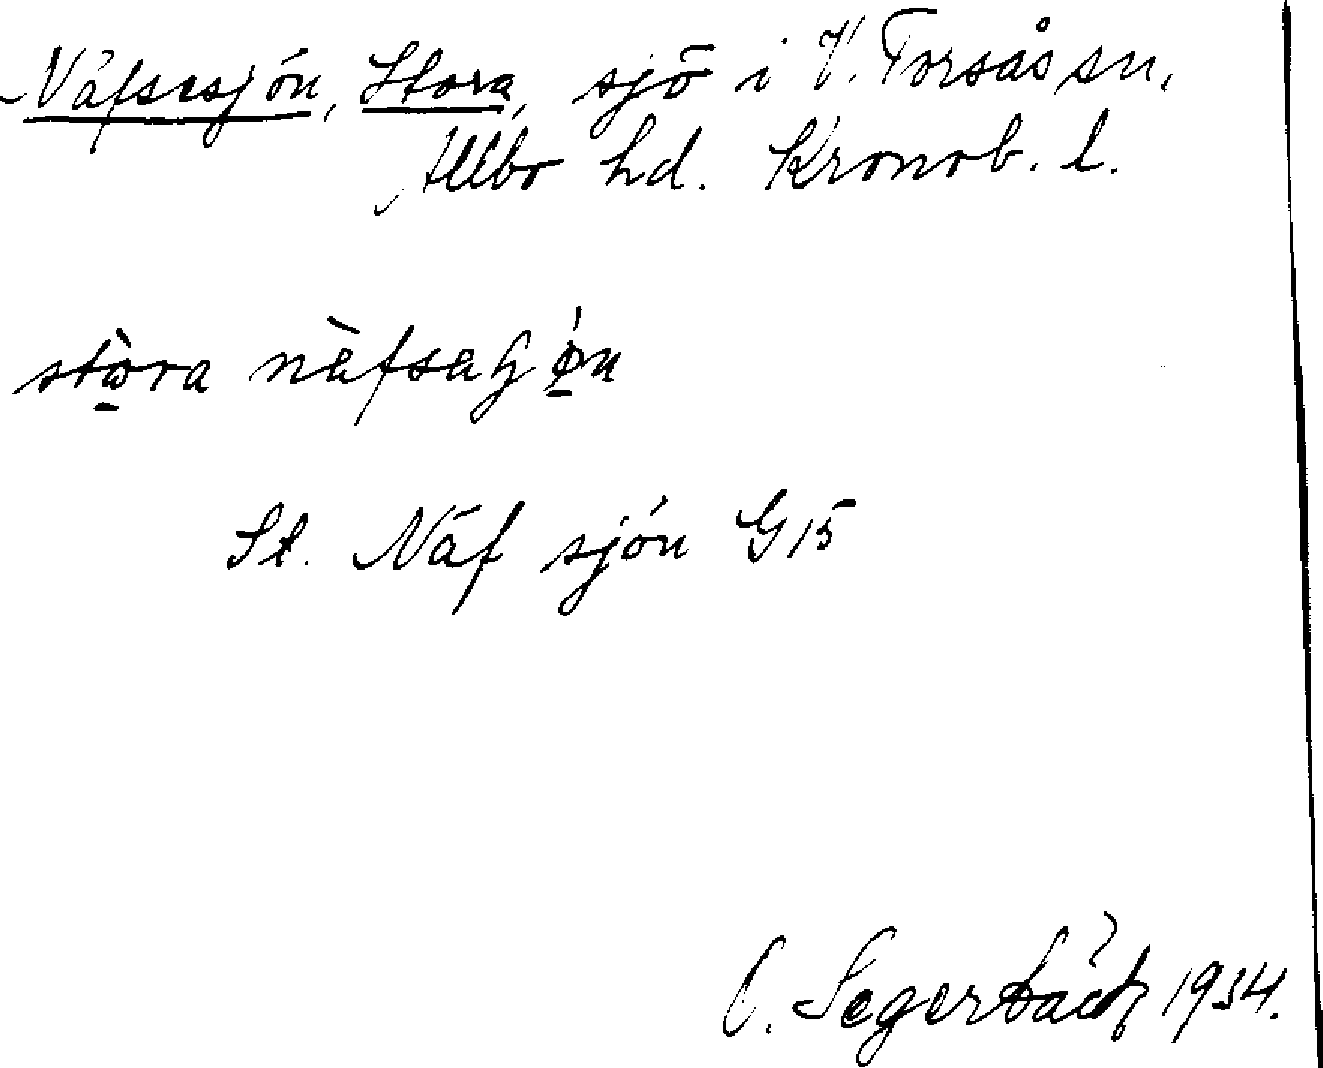 Näfsesjön, Stora, sjö i V. Torsås sn,
Allbo hd. Kronob. l.
stòra nèfsaɧǿn
St. Näf sjön G15
O. Segerbäck 1934.